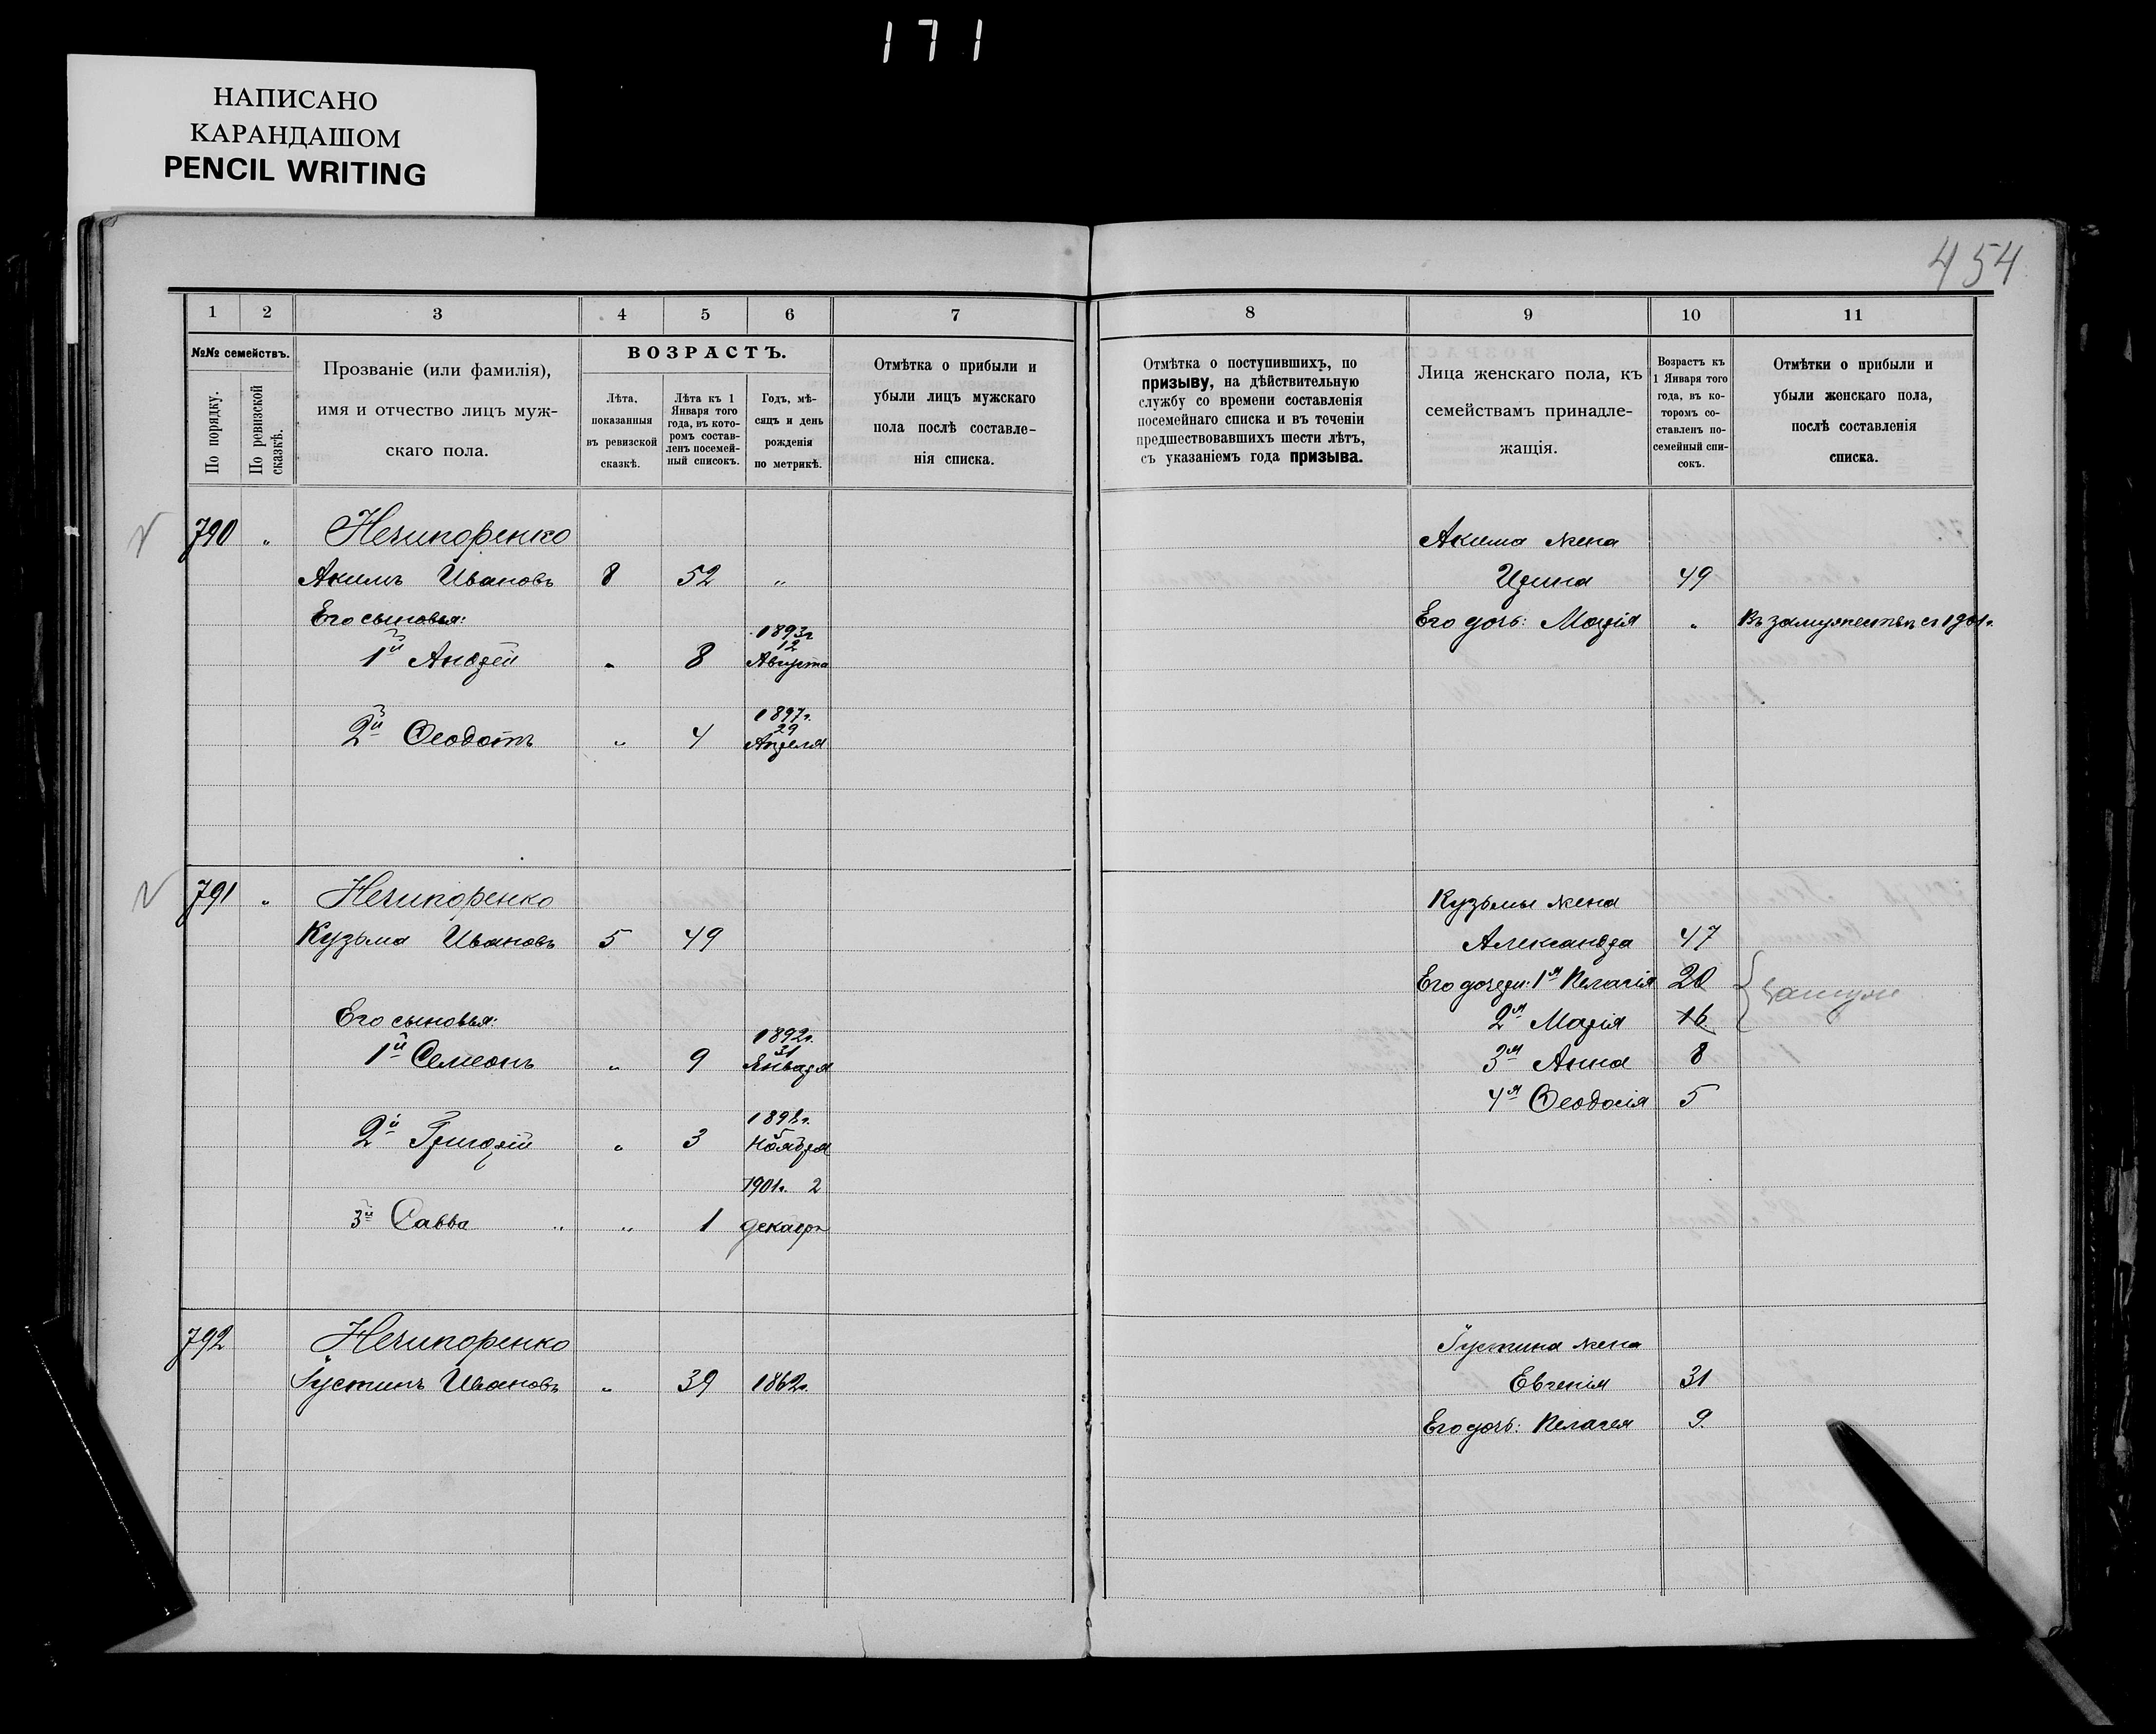 171
НАПИСАНО
КАРАНДАШОМ
PENCIL WRITING
454
1 2 3 4 5 6 7 8 9 10 11
№№ семействъ.
По порядку.
По ревизской сказкѣ.
Прозваніе (или фамилія),
имя и отчество лицъ муж-
скаго пола.
ВОЗРАСТЪ.
Лѣта,
показанныя
въ ревизской
сказкѣ.
Лѣта къ 1
Января того
года, въ кото-
ромъ состав-
ленъ посемей-
ный списокъ.
Годъ, мѣ-
сяцъ и день
рожденія
по метрикѣ.
Отмѣтка о прибыли и
убыли лицъ мужскаго
пола послѣ составле-
нія списка.
Отмѣтка о поступившихъ, по
призыву, на дѣйствительную
службу со времени составленія
посемейнаго списка и въ теченіи
предшествовавшихъ шести лѣтъ,
съ указаніемъ года призыва.
Лица женскаго пола, къ
семействамъ принадле-
жащія.
Возрастъ къ
1 Января того
года, въ ко-
торомъ со-
ставленъ по-
семейный спи-
сокъ.
Отмѣтки о прибыли и
убыли женскаго пола,
послѣ составленія
списка.
790 " Нечипоренко Акима жена
Акимъ Ивановъ 8 52 " Ирина 49
Его сыновья: Его дочь: Марія " Въ замужествѣ съ 1901г.
1й Андрей " 8 1893г 12 Августа
2й Ѳеодотъ " 4 1897г. 29 Апреля
791 " Нечипоренко Кузьмы жена
Кузьма Ивановъ 5 49 Александра 47
Его дочери: 1я Пелагія 20 замуж
Его сыновья: 2я Марія 16
1й Семеонъ " 9 1892г. 31 Января 3я Анна 8
4я Ѳеодосія 5
2й Григорій " 3 1898г. 5 Ноября
3й Савва " " 1 1901г. 2 декабр
792 Нечипоренко Іустина жена
Іустинъ Ивановъ " 39 1862г. Евгенія 31
Его дочь: Пелагея 9.